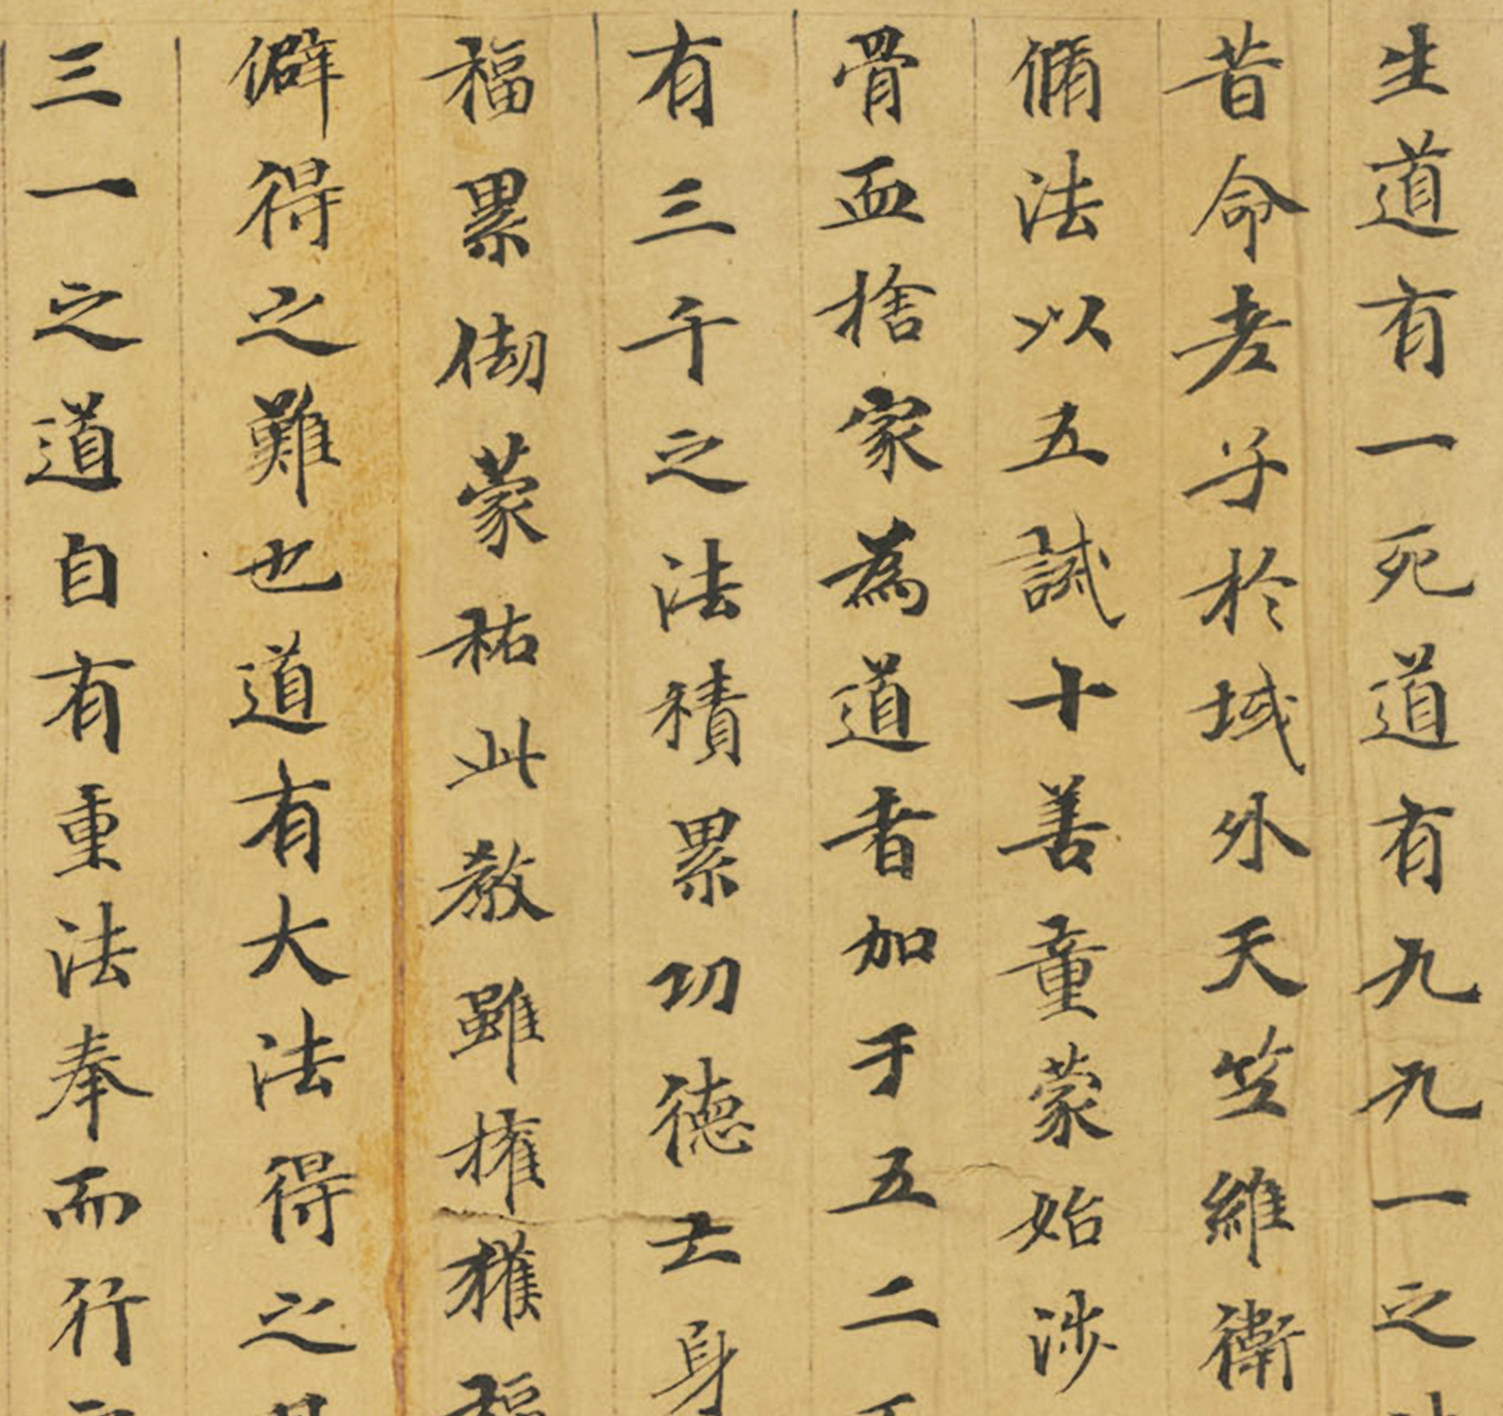 生道有一死道有九九一之
昔命老子於域外天竺維衛
脩法以五誡十善童蒙始涉
骨血捨家為道者加于五二
有三千之法積累功德士身
福累劫蒙祐此教雖權獲福
僻得之難也道有大法得之
三一之道自有重法奉而行